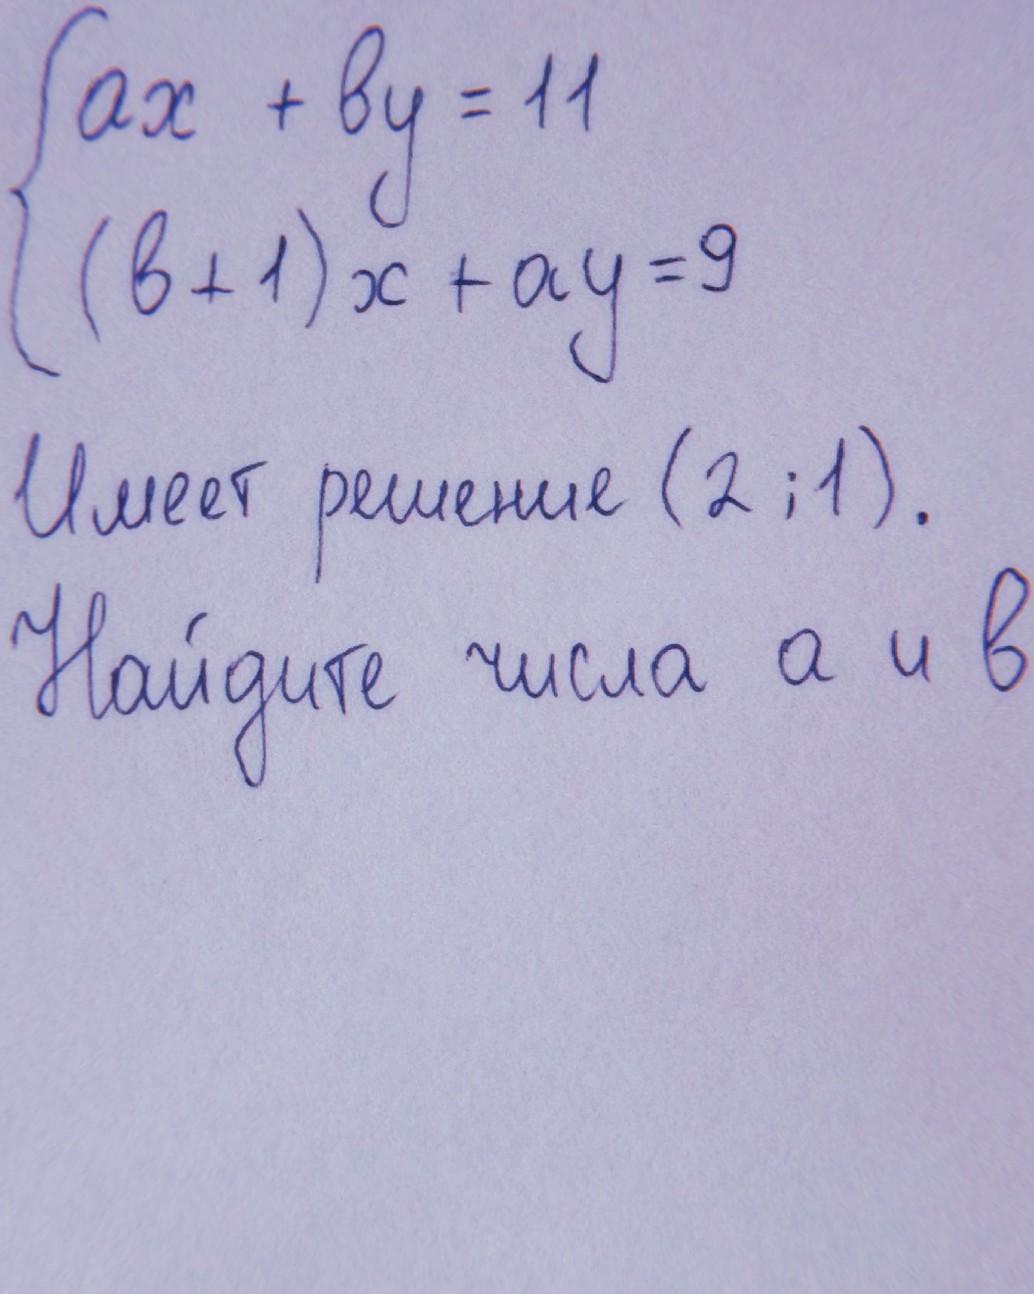 { ax + by = 11
(b+1)x + ay = 9
Имеет решение (2;1).
Найдите числа a и b